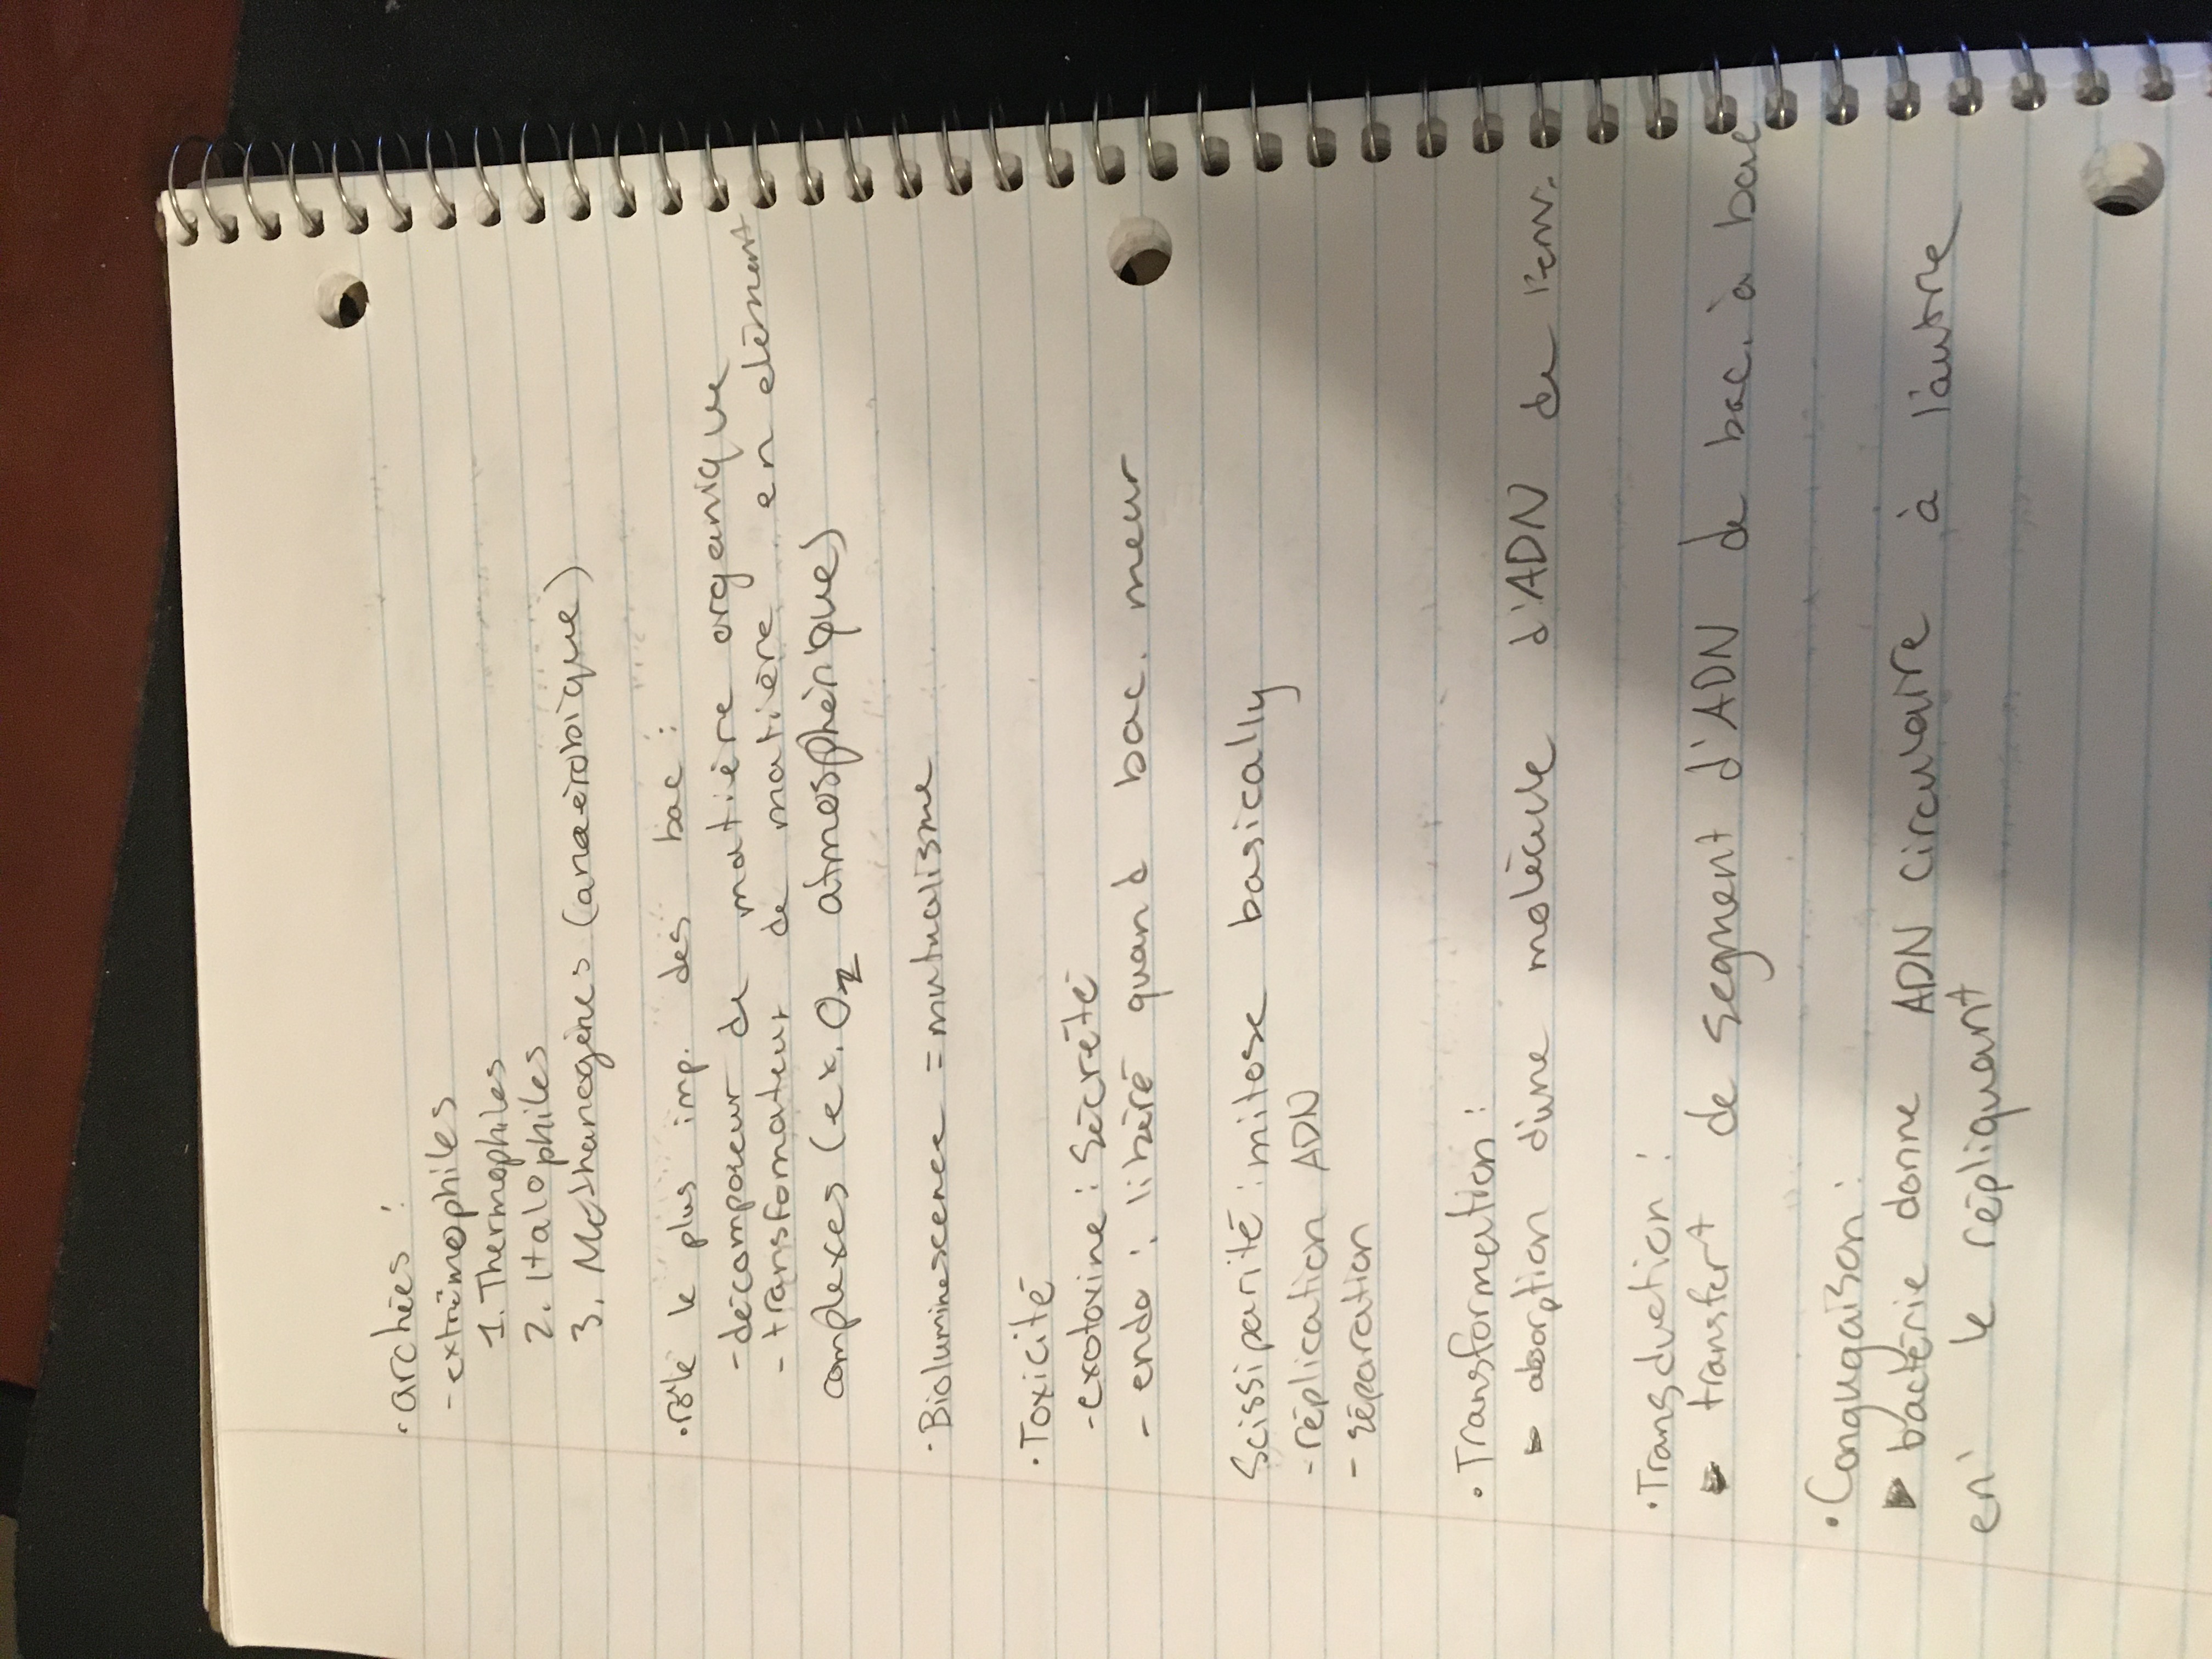 · archées :
- extrêmophiles
1. Thermophiles
2. Halophiles
3. Methanogènes (anaérobique)
· rôle le plus imp. des bac :
- décomposeur de matière organique
- transformateur de matière en élément
complexes (ex. O2 atmosphérique)
· Bioluminescence = mutualisme
· Toxicité
- exotoxine : sécrété
- endo : libéré quand bac. meur
Scissiparité : mitose basically
- réplication ADN
- séparation
· Transformation :
► absorption d'une molécule d'ADN de l'env.
· Transduction :
► transfert de segment d'ADN de bac. à bac
· Conguaison :
► bactérie donne ADN circulaire à l'autre
en le répliquant